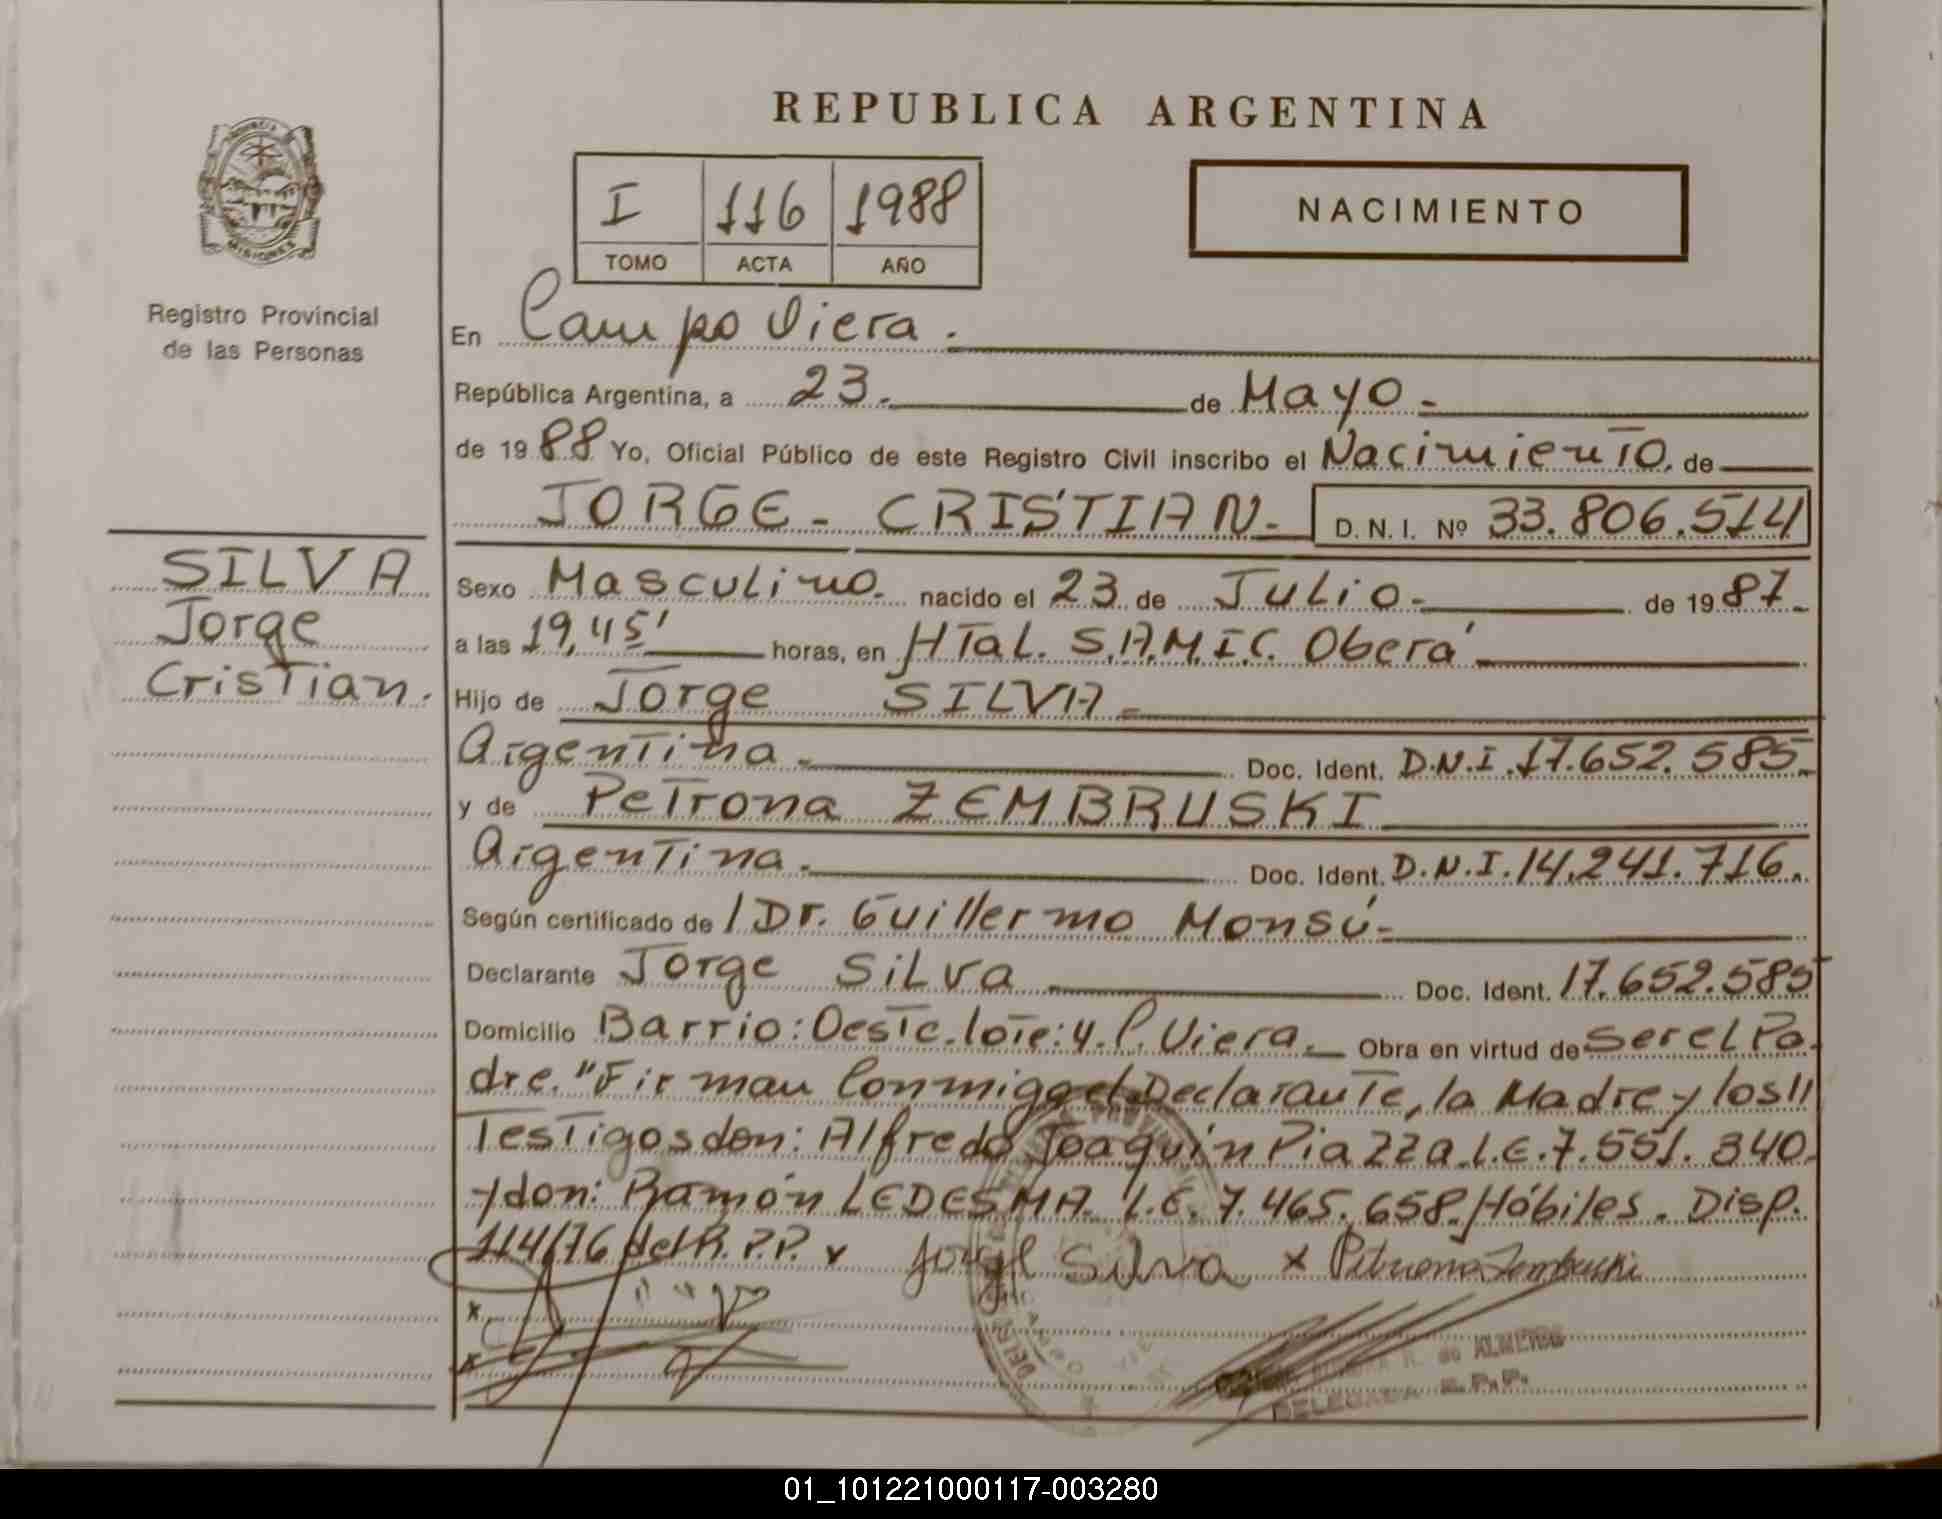 REPUBLICA ARGENTINA
I 116 1988
TOMO ACTA AÑO
NACIMIENTO
MISIONES
Registro Provincial
de las Personas
SILVA
Jorge
Cristian.
En Campo Viera.
República Argentina, a 23. de Mayo.
de 19 88 Yo, Oficial Público de este Registro Civil inscribo el Nacimiento. de
JORGE - CRISTIAN - D. N. I. Nº 33.806.514
Sexo Masculino. nacido el 23 de Julio. de 19 87
a las 19,45' horas, en HTal. S.A.M.I.C. Oberá
Hijo de Jorge SILVA
Argentina. Doc. Ident. D.N.I. 17.652.585.
y de Petrona ZEMBRUSKI
Argentina. Doc. Ident. D.N.I. 14.241.716.
Según certificado de / Dr. Guillermo Monsú-
Declarante Jorge Silva Doc. Ident. 17.652.585
Domicilio Barrio: Oeste. lote: 4. C. Viera. Obra en virtud de ser el Pa.
dre. "Firman Conmigo el Declarante, la Madre y los //
Testigos don: Alfredo Joaquín Piazza L.E. 7.551.340.
y don: Ramón LEDESMA. L.E. 7.465.658. Hábiles. Disp.
114/76 del R.P.P. x Jorge Silva x Petrona Zembruski
x
x
R. de ALMEIDA
DELEGADA R.P.P.
01_101221000117-003280